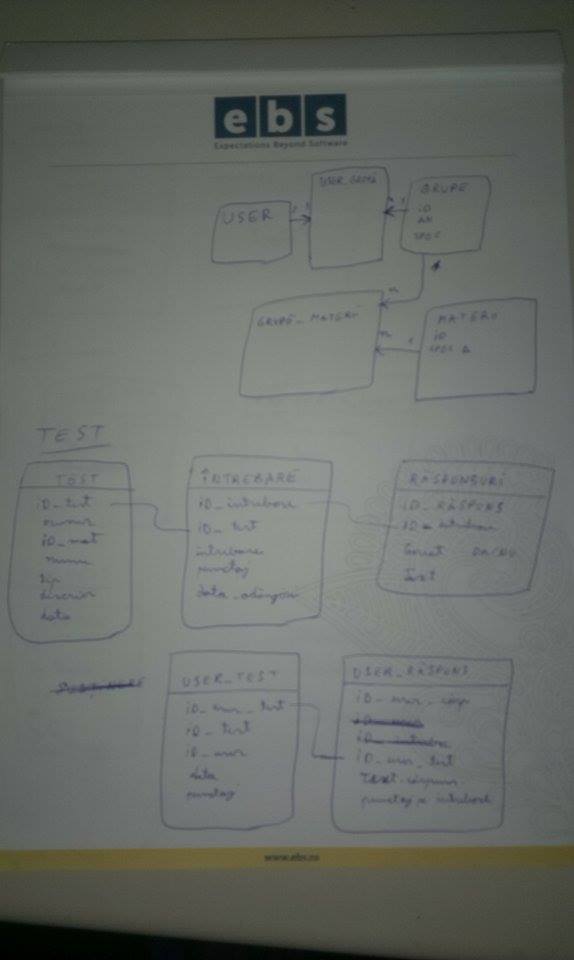 ebs
Expectations Beyond Software
USER
USER_GRUPĂ
GRUPE
ID
AN
SPEC
1
n
GRUPE_MATERII
n
1
MATERII
ID
TEST
TEST
ID_test
ID_mat
nume
tip
descriere
data
ÎNTREBARE
ID_intrebare
ID_test
intrebare
punctaj
data_adăugării
RĂSPUNSURI
ID_RĂSPUNS
ID_intrebare
Corect DA/NU
Text
USER_TEST
ID_user_test
ID_test
ID_user
data
punctaj
USER_RĂSPUNS
ID_user_răsp
ID_intrebare
ID_user_test
Text_răspuns
punctaj_intrebare
www.ebs.ro